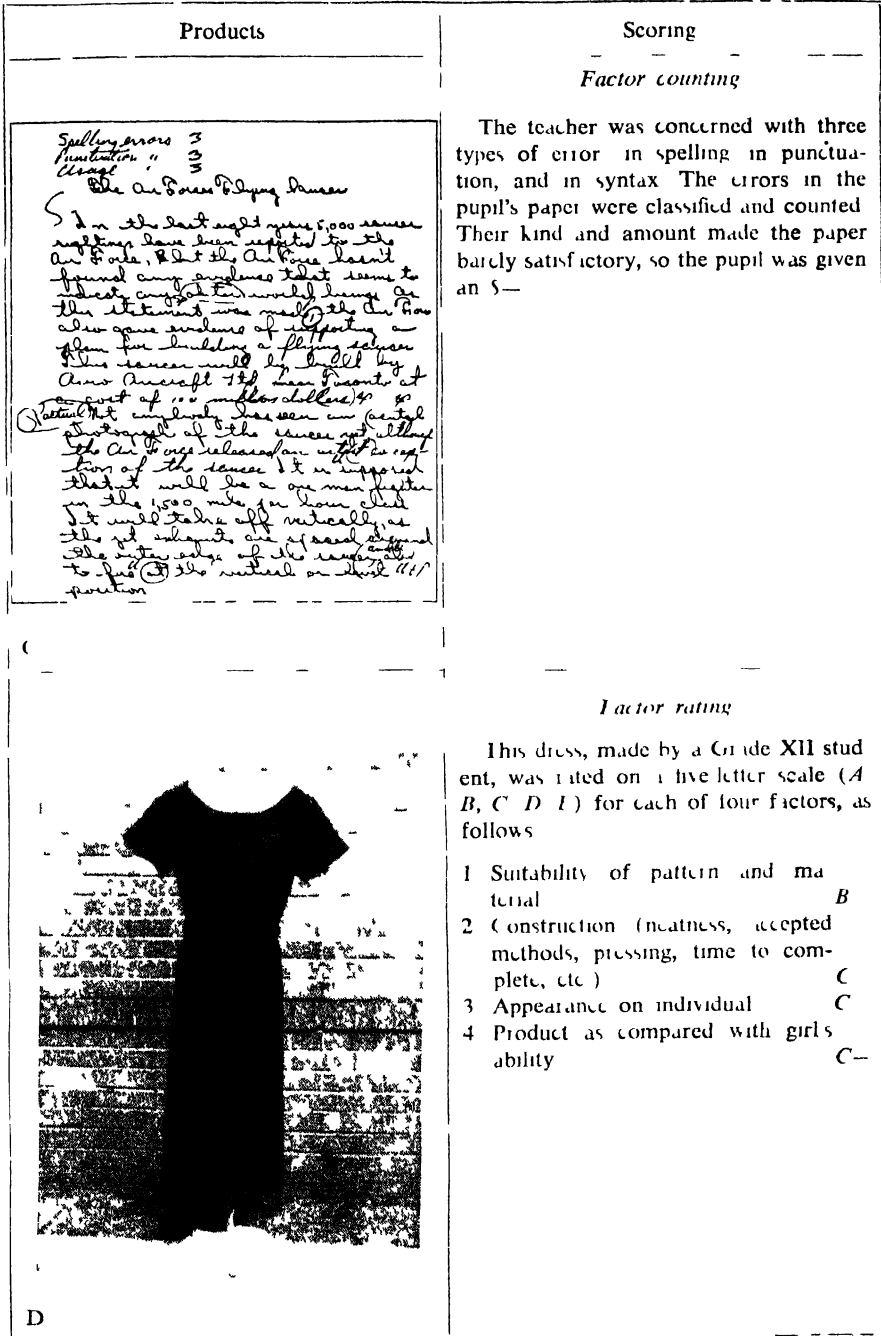 Products
Scoring
Factor counting
Spelling errors 3
Punctuation " 3
Usage " 3
The Air Forces Flying Saucer
In the last eight years 5,000 saucer
sightings have been reported to the
Air Force, But the Air Force hasn't
found any evidence that seems to
indicate any world beings As
this statement was made, the Air Force
also gave evidence of supporting a
plan for building a flying saucer
This saucer will be built by
Avro Aircraft Ltd near Toronto at
a cost of 100 million dollars
Not anybody has seen an
photograph of the saucer yet although
the Air Force released an
tion of the saucer It is supposed
that it will be a one man fighter
in the 1,500 mile per hour class
It will take off vertically, as
the jet exhausts are spaced around
the outer edge of the saucer
to the vertical or level
position
The teacher was concerned with three
types of error in spelling in punctua-
tion, and in syntax The errors in the
pupil's paper were classified and counted
Their kind and amount made the paper
barely satisfactory, so the pupil was given
an S—
C
Factor rating
This dress, made by a Grade XII stud
ent, was rated on a five letter scale (A
B, C D F) for each of four factors, as
follows
1 Suitability of pattern and ma
terial B
2 Construction (neatness, accepted
methods, pressing, time to com-
plete, etc ) C
3 Appearance on individual C
4 Product as compared with girls
ability C—
D